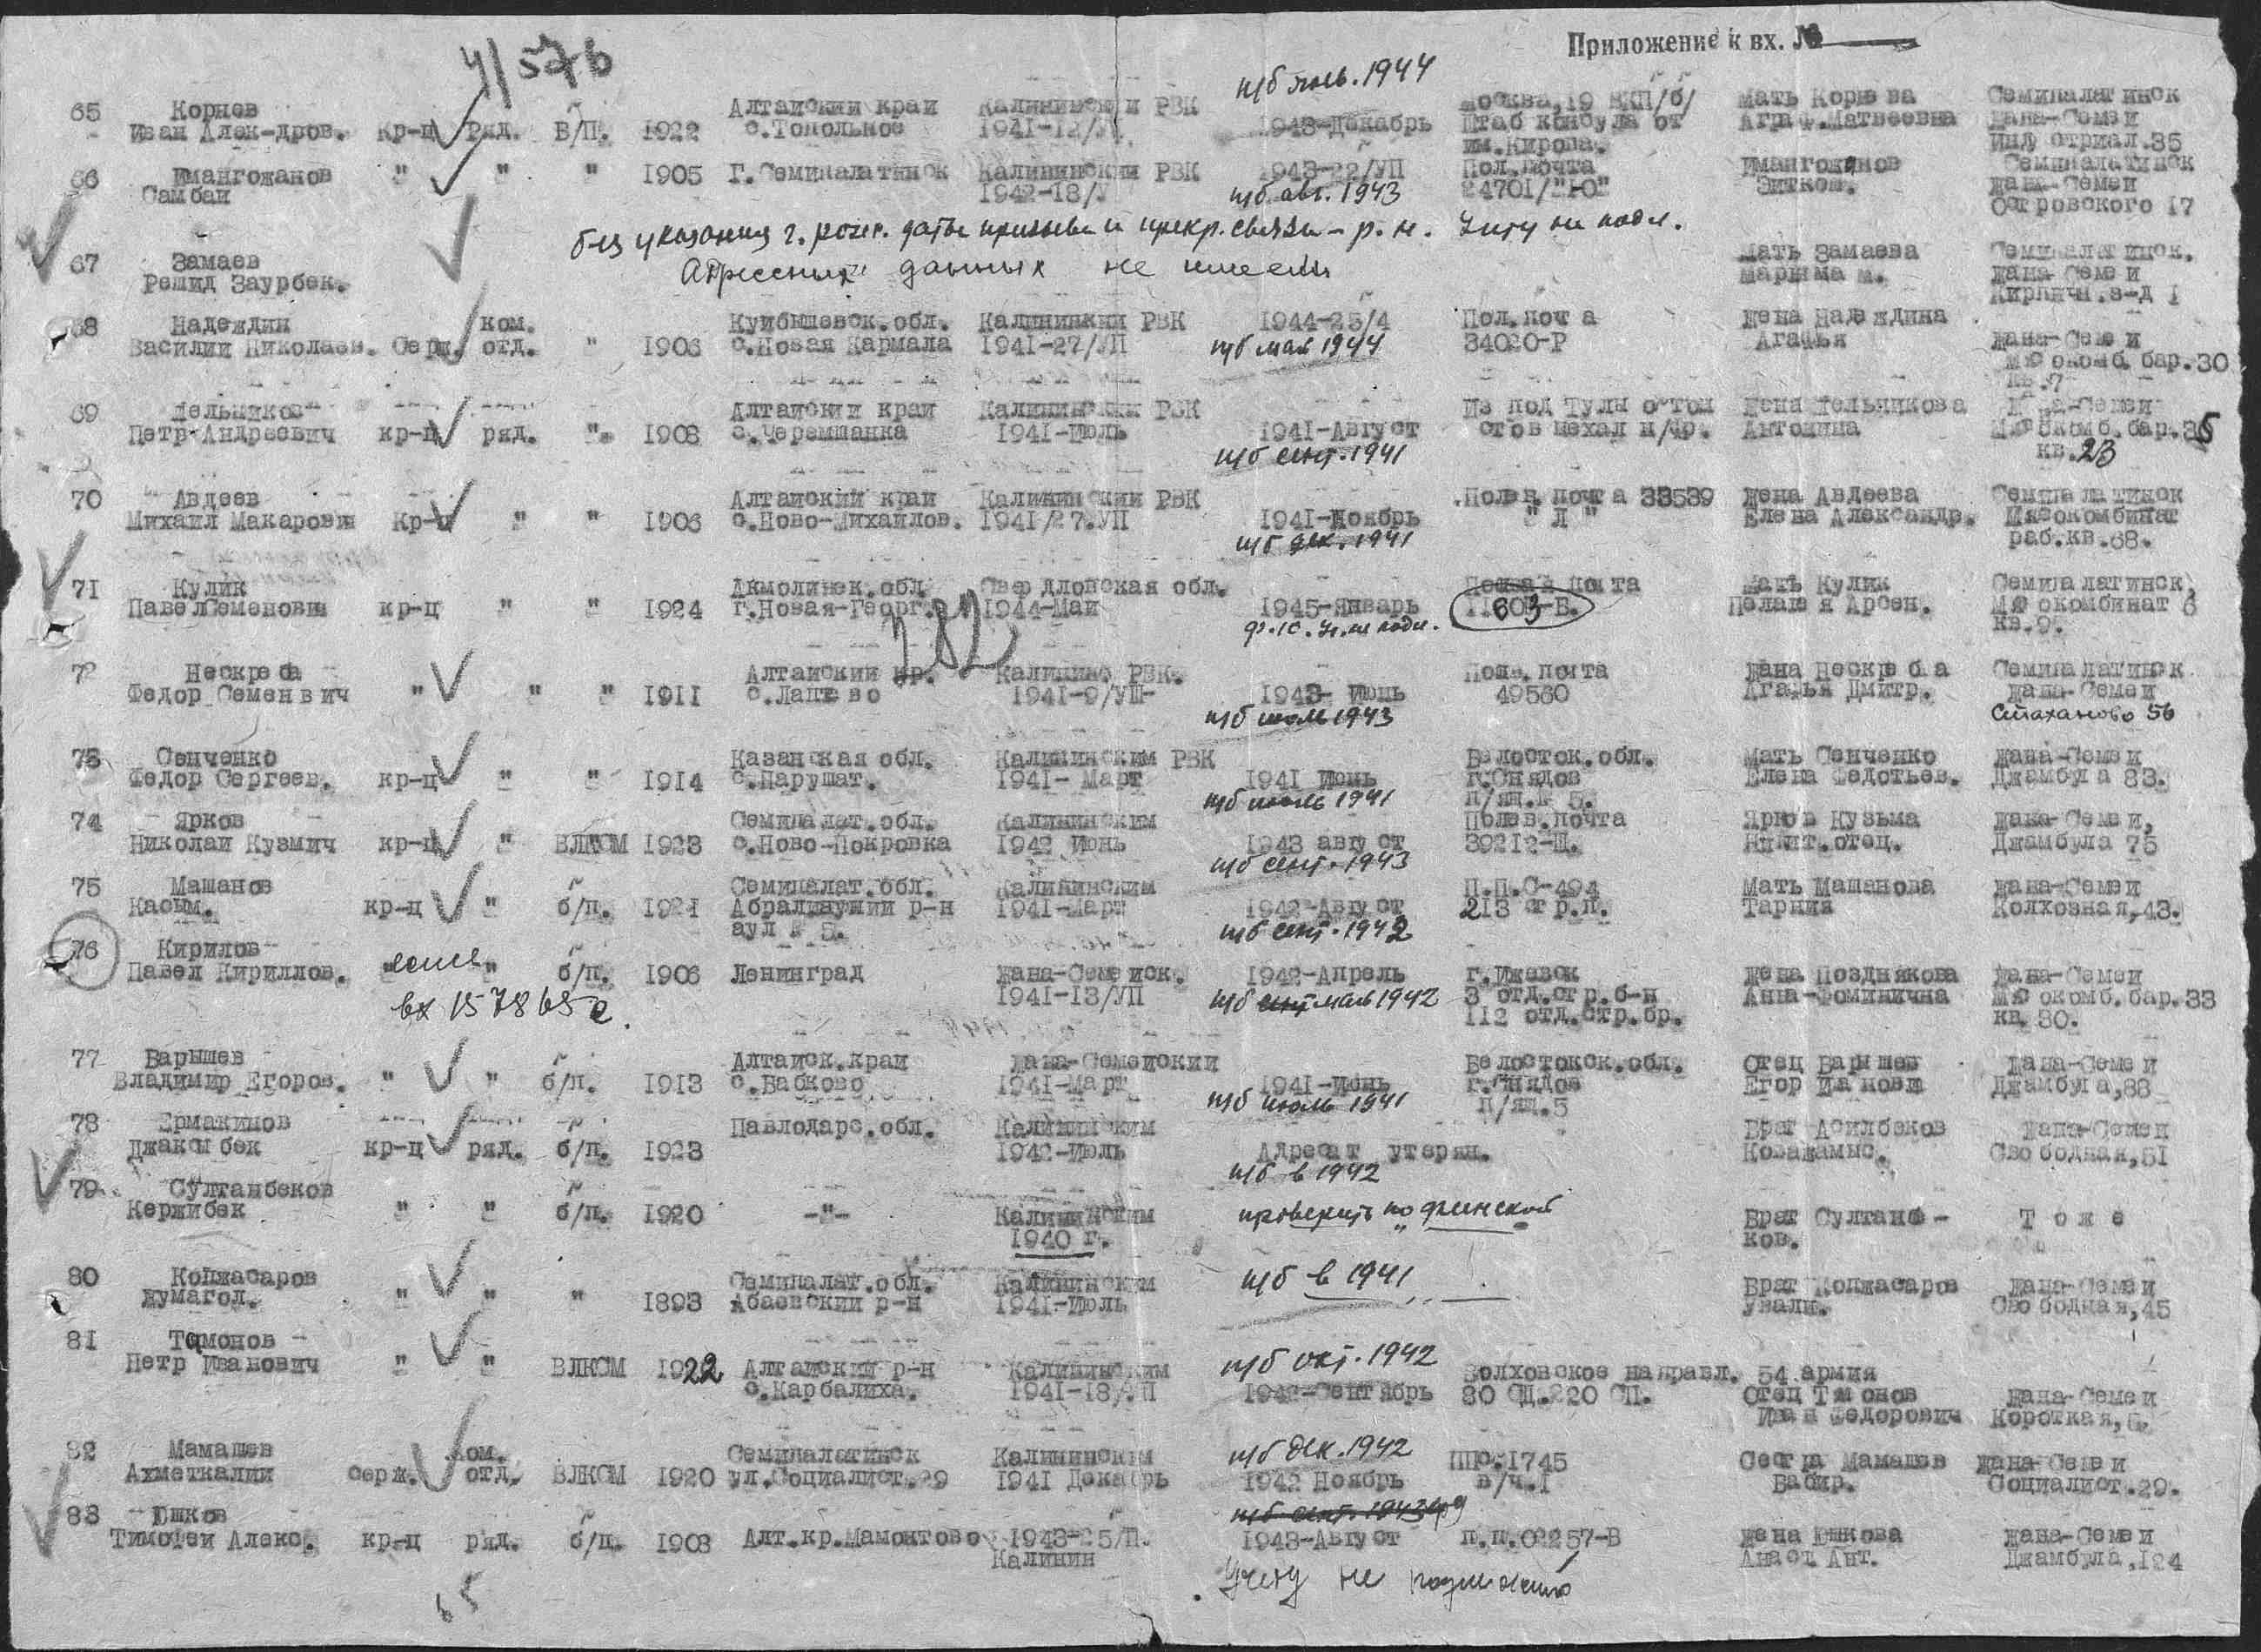 Приложение к вх. №
4/576
65 Корнев Алтайский край Калининский РВК п/б янв. 1944 Москва, 19 ВКП/б/ Мать Корнева Семипалатинск
Иван Алек-дров. Кр-ц Ряд. Б/П. 1922 с.Топольное 1941-12/ 1943-Декабрь Штаб Аграф.Матвеевна Жана-Семей
им.Кирова. 35
66 Имангожанов " " " 1905 Г.Семипалатинск Калининский РВК 1943-22/УП Пол.почта Имангожанов Семипалатинск
Самбай 1942-18/У п/б авг. 1943 24701/"Ю" Зитком. Жана-Семей
Островского 17
без указания г. рожд. даты призыва и прекр. связи - р. н. Учету не подл.
67 Замаев Адресных данных не имеем Мать Замаева Семипалатинск.
Решид Заурбек. Марьяма м. Жана Семей
Кирпичн.з-д 1
68 Надеждин ком. Куйбышевск.обл. Калининкий РВК 1944-25/4 Пол.почта Жена Надеждина
Василий Николаев. Серж. отд. " 1906 с.Новая Кармала 1941-27/УП п/б май 1944 34020-Р Агафья Жана-Семей
Мясокомб. бар.30
кв.7
69 Мельников Алтайский край Калининский РВК Из под Тулы Жена Мельникова Жана-Семей
Петр Андреевич кр-ц ряд. ". 1908 с.Черемшанка 1941-Июль 1941-Август Антонина Мясокомб.бар.35
п/б сент. 1941 кв.23
70 Авдеев Алтайский край Калининский РВК Полев. почта 33539 Жена Авдеева Семипалатинск
Михаил Макарович Кр-ц " " 1906 с.Ново-Михайлов. 1941/27.УП 1941-Ноябрь " Л " Елена Александр. Мясокомбинат
п/б дек. 1941 раб.кв.68.
71 Кулик Акмолинск.обл. Свердловская обл. Полевая почта Мать Кулик Семипалатинск,
Павел Семенович кр-ц " " 1924 г.Новая-Георг. 1944-Май 1945-Январь 11603-В. Пелагея Арсен. Мясокомбинат 6
ф. 10. Уч. не подл. кв.9.
182
72 Нескреба Алтайский кр. Калининс РВК. Полев. почта Жена Нескреба Семипалатинск
Федор Семенвич " " " 1911 с.Лаптево 1941-9/УШ- 1943- Июнь 49560 Агафья Дмитр. Жана-Семей
п/б июль 1943 Стаханово 56
73 Сенченко Казанская обл. Калининским РВК Белосток.обл. Мать Сенченко Жана-Семей
Федор Сергеев. кр-ц " " 1914 с.Парушат. 1941- Март 1941 Июнь г.Снядов Елена Федотьев. Джамбула 83.
п/б июль 1941 п/ящ.№ 5.
74 Ярков Семипалат.обл. Калининским Полев.почта Ярков Кузьма Жана-Семей,
Николай Кузмич кр-ц " ВЛКСМ 1923 с.Ново-Покровка 1942 Июнь 1943 август 39212-Щ. Никит.отец. Джамбула 75
п/б сент. 1943
75 Машанов Семипалат.обл. Калининским П.П.С-494 Мать Машанова Жана-Семей
Касым. кр-ц " б/п. 1921 Абралинуким р-н 1941-Март 1942-Август 213 стр.п. Тарния Колхозная,43.
аул № 5. п/б сент. 1942
76 Кирилов
Павел Кириллов. " есть " б/п. 1906 Ленинград Жана-Семейск. 1942-Апрель г.Ижевск Жена Позднякова Жана-Семей
вх 157865с. 1941-13/УП п/б май 1942 3 отд.стр.б-н Анна-Фоминична Мясокомб.бар.33
112 отд.стр.бр. кв.30.
77 Барышев Алтайск.край Жана-Семейский Белостокск.обл. Отец Барышев Жана-Семей
Владимир Егоров. " " б/п. 1913 с.Бабково 1941-Март 1941-Июнь г.Снядов Егор Иванович Джамбула,88
п/б июль 1941 п/ящ.5
78 Ермакинов Павлодарс.обл. Калининским Брат Асилбеков Жана-Семей
Джаксыбек кр-ц ряд. б/п. 1923 1942-Июль Адресат утерян. Кожажамыс. Свободная,51
п/б в 1942
79 Султанбеков
Кержибек " " б/п. 1920 -"- Калининским проверить по финской Брат Султанб- Т о ж е
1940 г. ков.
80 Копжасаров Семипалат.обл. Калининским п/б в 1941 Брат Копжасаров Жана-Семей
Жумагол. " " " 1893 Абаевский р-н 1941-Июль Ували. Свободная,45
81 Тамонов
Петр Иванович " " ВЛКСМ 1922 Алтайский р-н Калининским п/б окт. 1942 Волховское направл. 54 армия
с.Карбалиха. 1941-18/УП 1942-Сентябрь 80 СД.220 СП. Отец Тамонов Жана-Семей
Иван Федорович Короткая,
82 Мамашев ком. Семипалатинск Калининским п/б дек. 1942 ППС.1745 Сестра Мамашев Жана-Семей
Ахметкалий серж. отд. ВЛКСМ 1920 ул.Социалист.29 1941 Декабрь 1942 Ноябрь в/ч.1 Бабир. Социалист.29.
83 Юшков п/б сент. 1943
Тимофей Алекс. кр-ц ряд. б/п. 1903 Алт.кр.Мамонтово 1943-25/П. 1943-Август п.п.02257-В Жена Юшкова Жана-Семей
Калинин Анаст Ант. Джамбула,124
Учету не подлежит
65